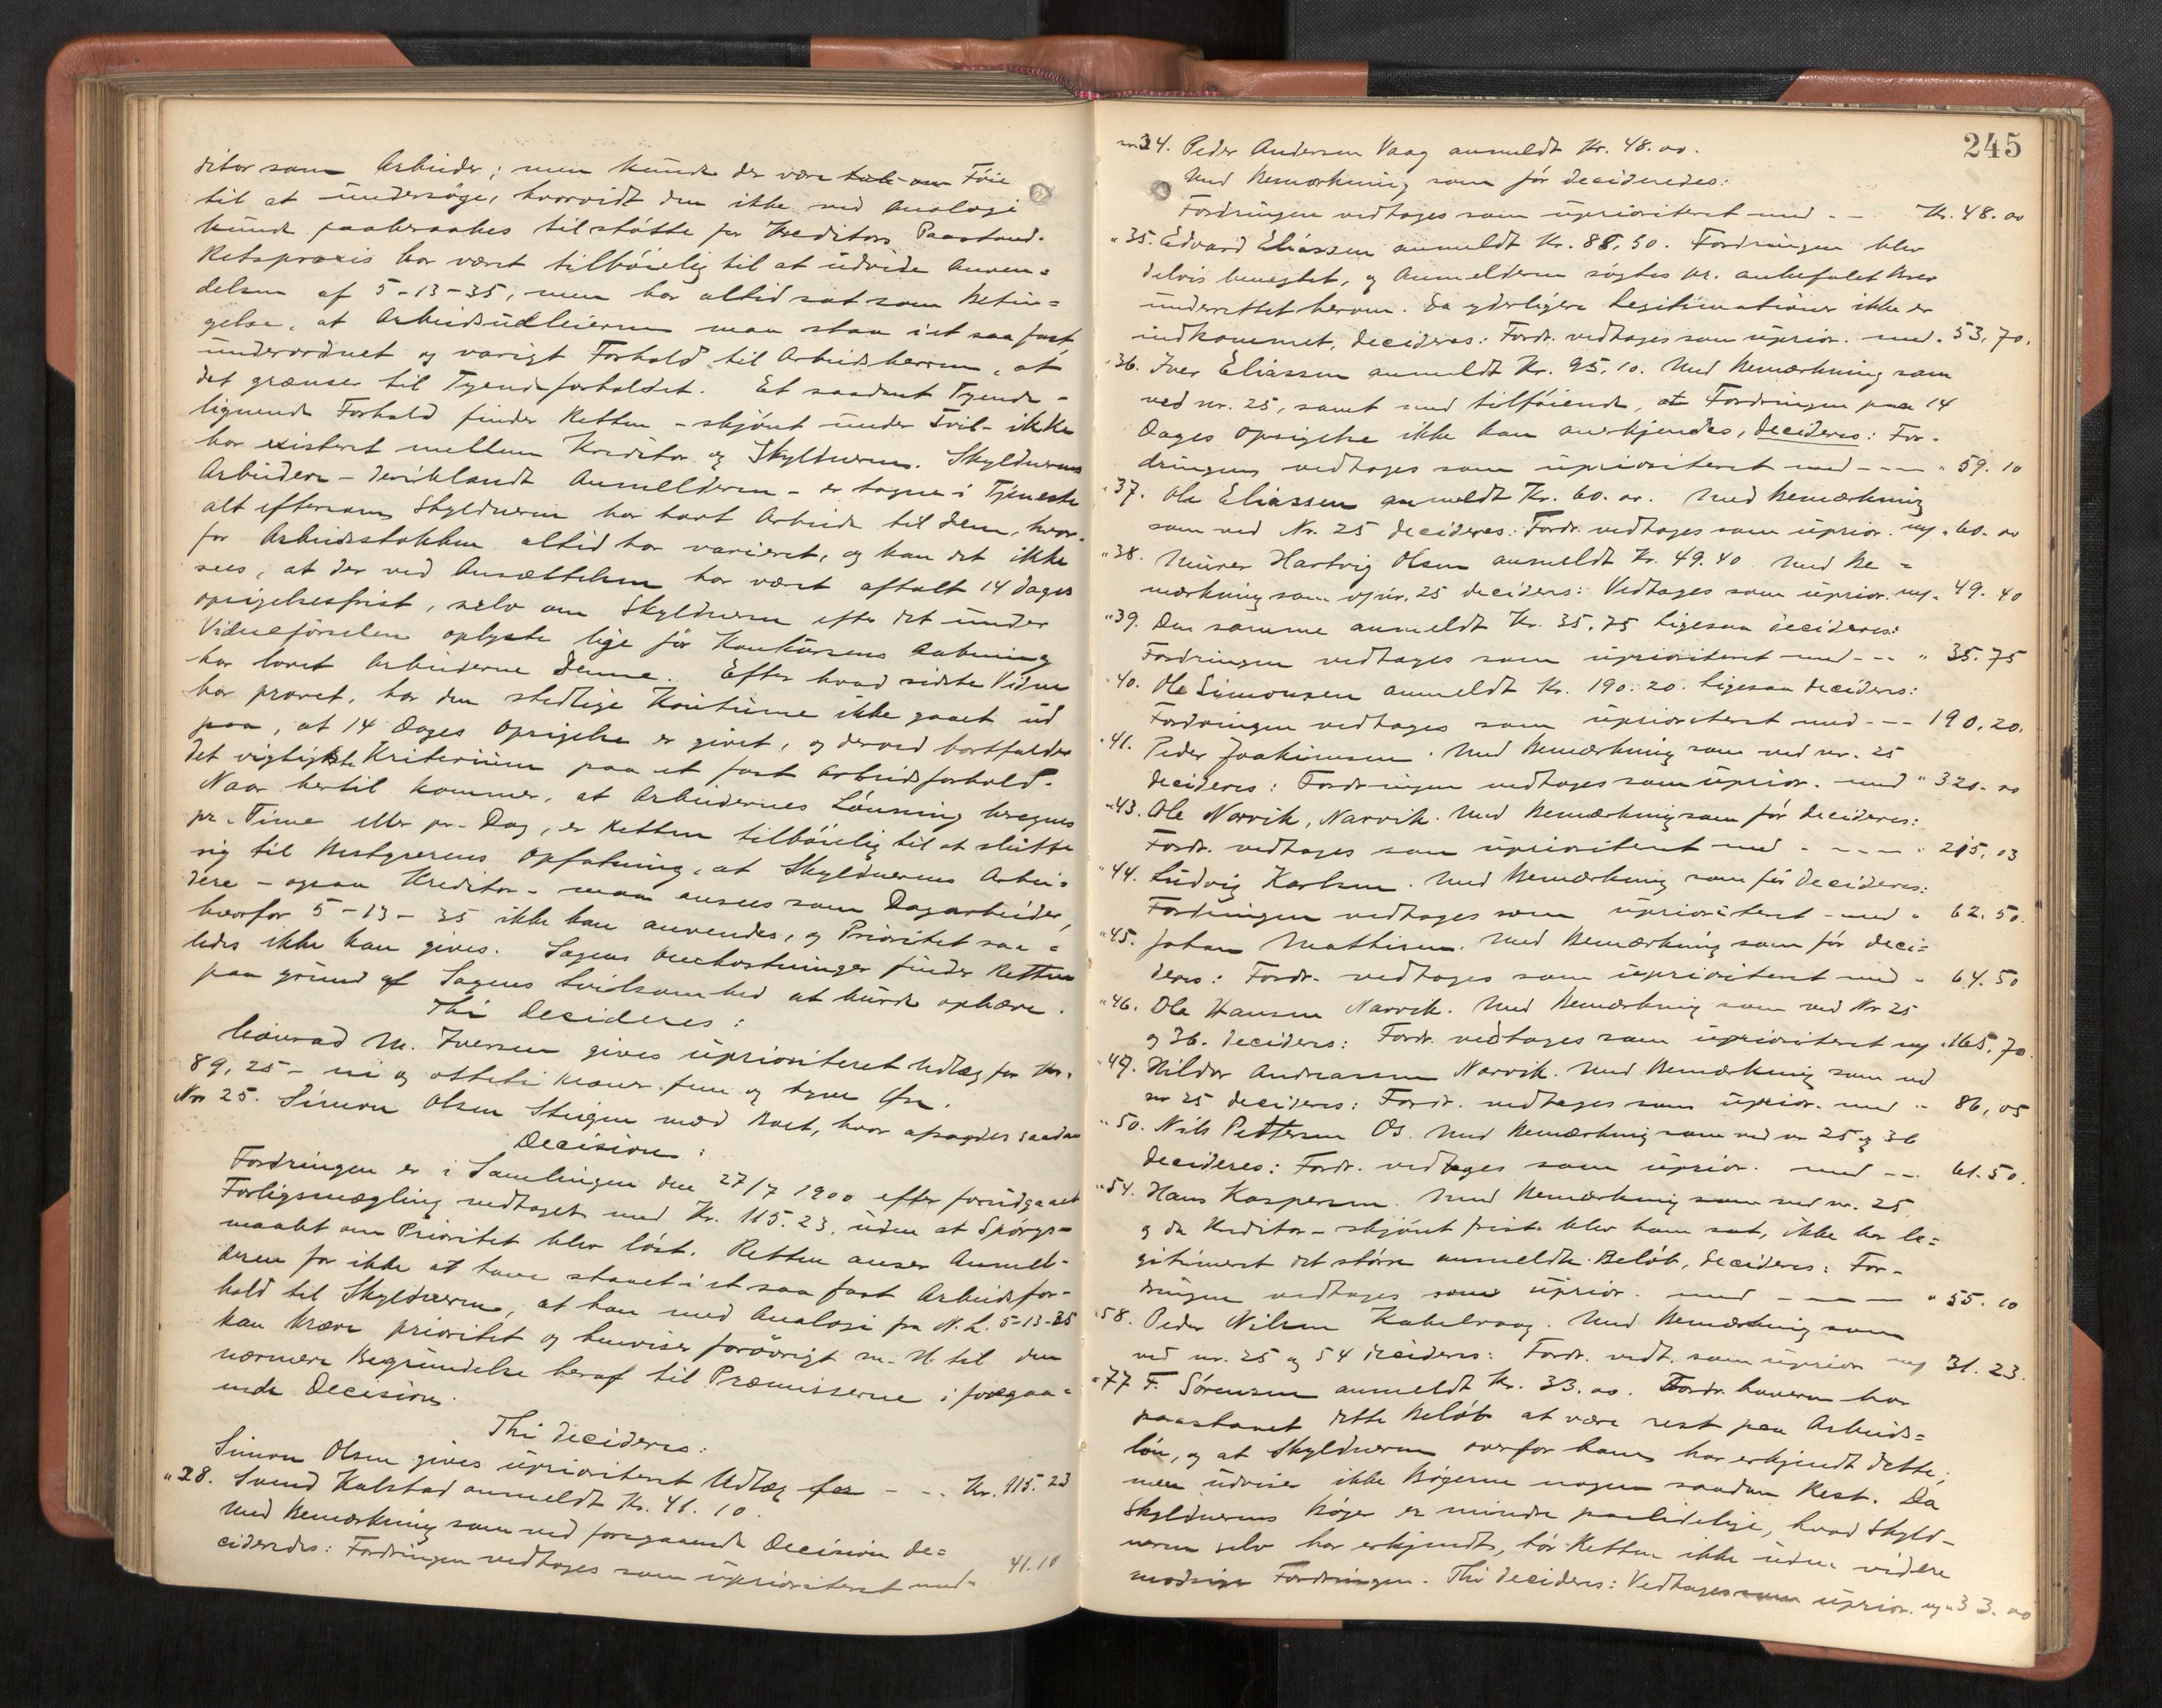 ditor som Arbeider; men kunde der være Föie
til at undersöge, hvorvidt den ikke ved Analogi
kunde paaberaabes til støtte for Kreditors Paastand.
Retspraxis har været tilböielig til at udvide Anven=
delsen af 5-13-35, men har altid sat som Betin=
gelse, at Arbeidsudleieren maa staa i et saa fast,
underordnet og varigt Forhold til Arbeidsherren, at
det grænser til Tyendeforholdet. Et saadant Tyende=
lignende Forhold finder Retten - skjönt under Tvil - ikke
har existeret mellem Kreditor og Skyldneren. Skyldnerens
Arbeidere - deriblandt Anmelderen - er tagne i Tjeneste
alt eftersom Skyldneren har havt Arbeide til dem, hvor-
for Arbeidsstokken altid har varieret, og kan det ikke
sees, at der ved Ansættelsen har været aftalt 14 dages
opsigelsesfrist, selv om Skyldneren efter det under
Vidneförselen oplyste lige för Konkursens Aabning
har lovet Arbeiderne denne. Efter hvad sidste Vidne
har provet, har den stedlige Koutume ikke gaaet ud
paa, at 14 Dages Opsigelse er givet, og derved bortfalder
det vigtigste Kriterium paa et fast Arbeidsforhold.
Naar hertil kommer, at Arbeidernes Lönning beregnes
pr. Time eller pr. Dag, er Retten tilböielig til at slutte
sig til Bestyrerens Opfatning, at Skyldnerens Arbei=
dere - ogsaa Kreditor - maa ansees som Dagarbeider,
hvorfor 5-13-35 ikke kan anvendes, og Prioritet saa=
ledes ikke kan gives. Sagens Omkostninger finder Retten
paa grund af Sagens tvilsomhed at burde ophæve.
Thi decideres:
Conrad M. Iversen gives uprioriteret Udlæg for Kr.
89,25 - ni og otteti Kroner fem og tyve Øre.
No 25. Simon Olsen Steigen mod Boet, hvor afsagdes saadan
Decision:
Fordringen er i Samlingen den 27/7 1900 efter forudgaaet
Forligsmægling vedtaget med Kr. 115.23, uden at Spörgs=
maalet om Prioritet blev löst. Retten anser Anmel-
deren for ikke at have staaet i et saa fast Arbeidsfor-
hold til Skyldneren, at han med Analogi fra N. L. 5-13-35
kan kræve prioritet og henviser forövrigt m. H. til den
nærmere Begrundelse heraf til Præmisserne i foregaa=
ende Decision.
Thi decideres:
Simon Olsen gives uprioriteret Udlæg for - - Kr. 115.23
" 28. Svend Kalstad anmeldt Kr. 41.10.
Med Bemærkning som ved foregaaende Decision de=
cideredes: Fordringen vedtages som uprioriteret med " 41.10
245
nr. 34. Peder Andersen Vaag anmeldt Kr. 48.00.
Med Bemærkning som för decideredes:
Fordringen vedtages som uprioriteret med - - Kr. 48.00
" 35. Edvard Eliassen anmeldt Kr. 88,50. Fordringen blev
delvis benegtet, og Anmelderen søgtes pr. anbefalet Brev
underrettet herom. Da yderligere Legitimationer ikke er
indkommet, decideres: Fordr. vedtages som uprior. med " 53,70.
" 36. Iver Eliassen anmeldt Kr. 95.10. Med Bemærkning som
ved nr. 25, samt med tilföiende, at Fordringen paa 14
Dages Opsigelse ikke kan anerkjendes, decideres: For-
dringen vedtages som uprioriteret med - - - " 59.10
" 37. Ole Eliassen anmeldt Kr. 60.00. Med Bemærkning
som ved Nr. 25 decideres: Fordr. vedtages som uprior. m. " 60.00
" 38. Murer Hartvig Olsen anmeldt Kr. 49.40. Med Be=
mærkning som v. nr. 25 decideres: Vedtages som uprior. m. " 49.40
" 39. Den samme anmeldt Kr. 35.75 Ligesaa decideres:
Fordringen vedtages som uprioriteret med - - - " 35.75
" 40. Ole Simonsen anmeldt Kr. 190.20. Ligesaa decideres:
Fordringen vedtages som uprioriteret med - - - 190.20.
" 41. Peder Joakimsen. Med Bemærkning som ved nr. 25
decideres: Fordringen vedtages som uprior. med " 320.00
" 43. Ole Norvik, Narvik. Med Bemærkning som för decideres:
Fordr. vedtages som uprioriteret med - - - - " 215.03
" 44. Ludvig Karlsen. Med Bemærkning som för decideres:
Fordringen vedtages som uprioriteret - med " 62.50.
" 45. Johan Mathisen. Med Bemærkning som för deci=
deres: Fordr. vedtages som uprioriteret med " 64.50
" 46. Ole Hansen Narvik. Med Bemærkning som ved Nr 25
og 36. decideres: Fordr. vedtages som uprioriteret m. " 165,70.
" 49. Hildor Andreassen Narvik. Med Bemærkning som ved
nr 25 decideres: Fordr. vedtages som uprior. med - " 86,05
" 50. Nils Pettersen Os. Med Bemærkning som ved nr 25 og 36
decideres: Fordr. vedtages som uprior. med - - 61.50.
" 54. Hans Kaspersen. Med Bemærkning som ved nr. 25,
og da Kreditor - skjönt frist blev ham sat, ikke har le=
gitimeret det större anmeldte Beløb, decideres: For-
dringen vedtages som uprior. med - - - " 55.10
" 58. Peder Nilsen Kabelvaag. Med Bemærkning som
ved nr. 25 og 54 decideres: Fordr. vedt. som uprior m. 31.23.
" 77 F. Sörensen anmeldt Kr. 33.00. Fordr. haveren har
paastaaet dette Beløb at være rest paa Arbeids=
lön, og at Skyldneren overfor ham har erkjendt dette;
men udviser ikke Bögerne nogen saadan Rest. Da
Skyldnerens böger er mindre paalidelige, hvad Skyld-
neren selv har erkjendt, tör Retten ikke uden videre
modsige Fordringen. Thi decideres: Vedtages som uprior. m. " 33.00